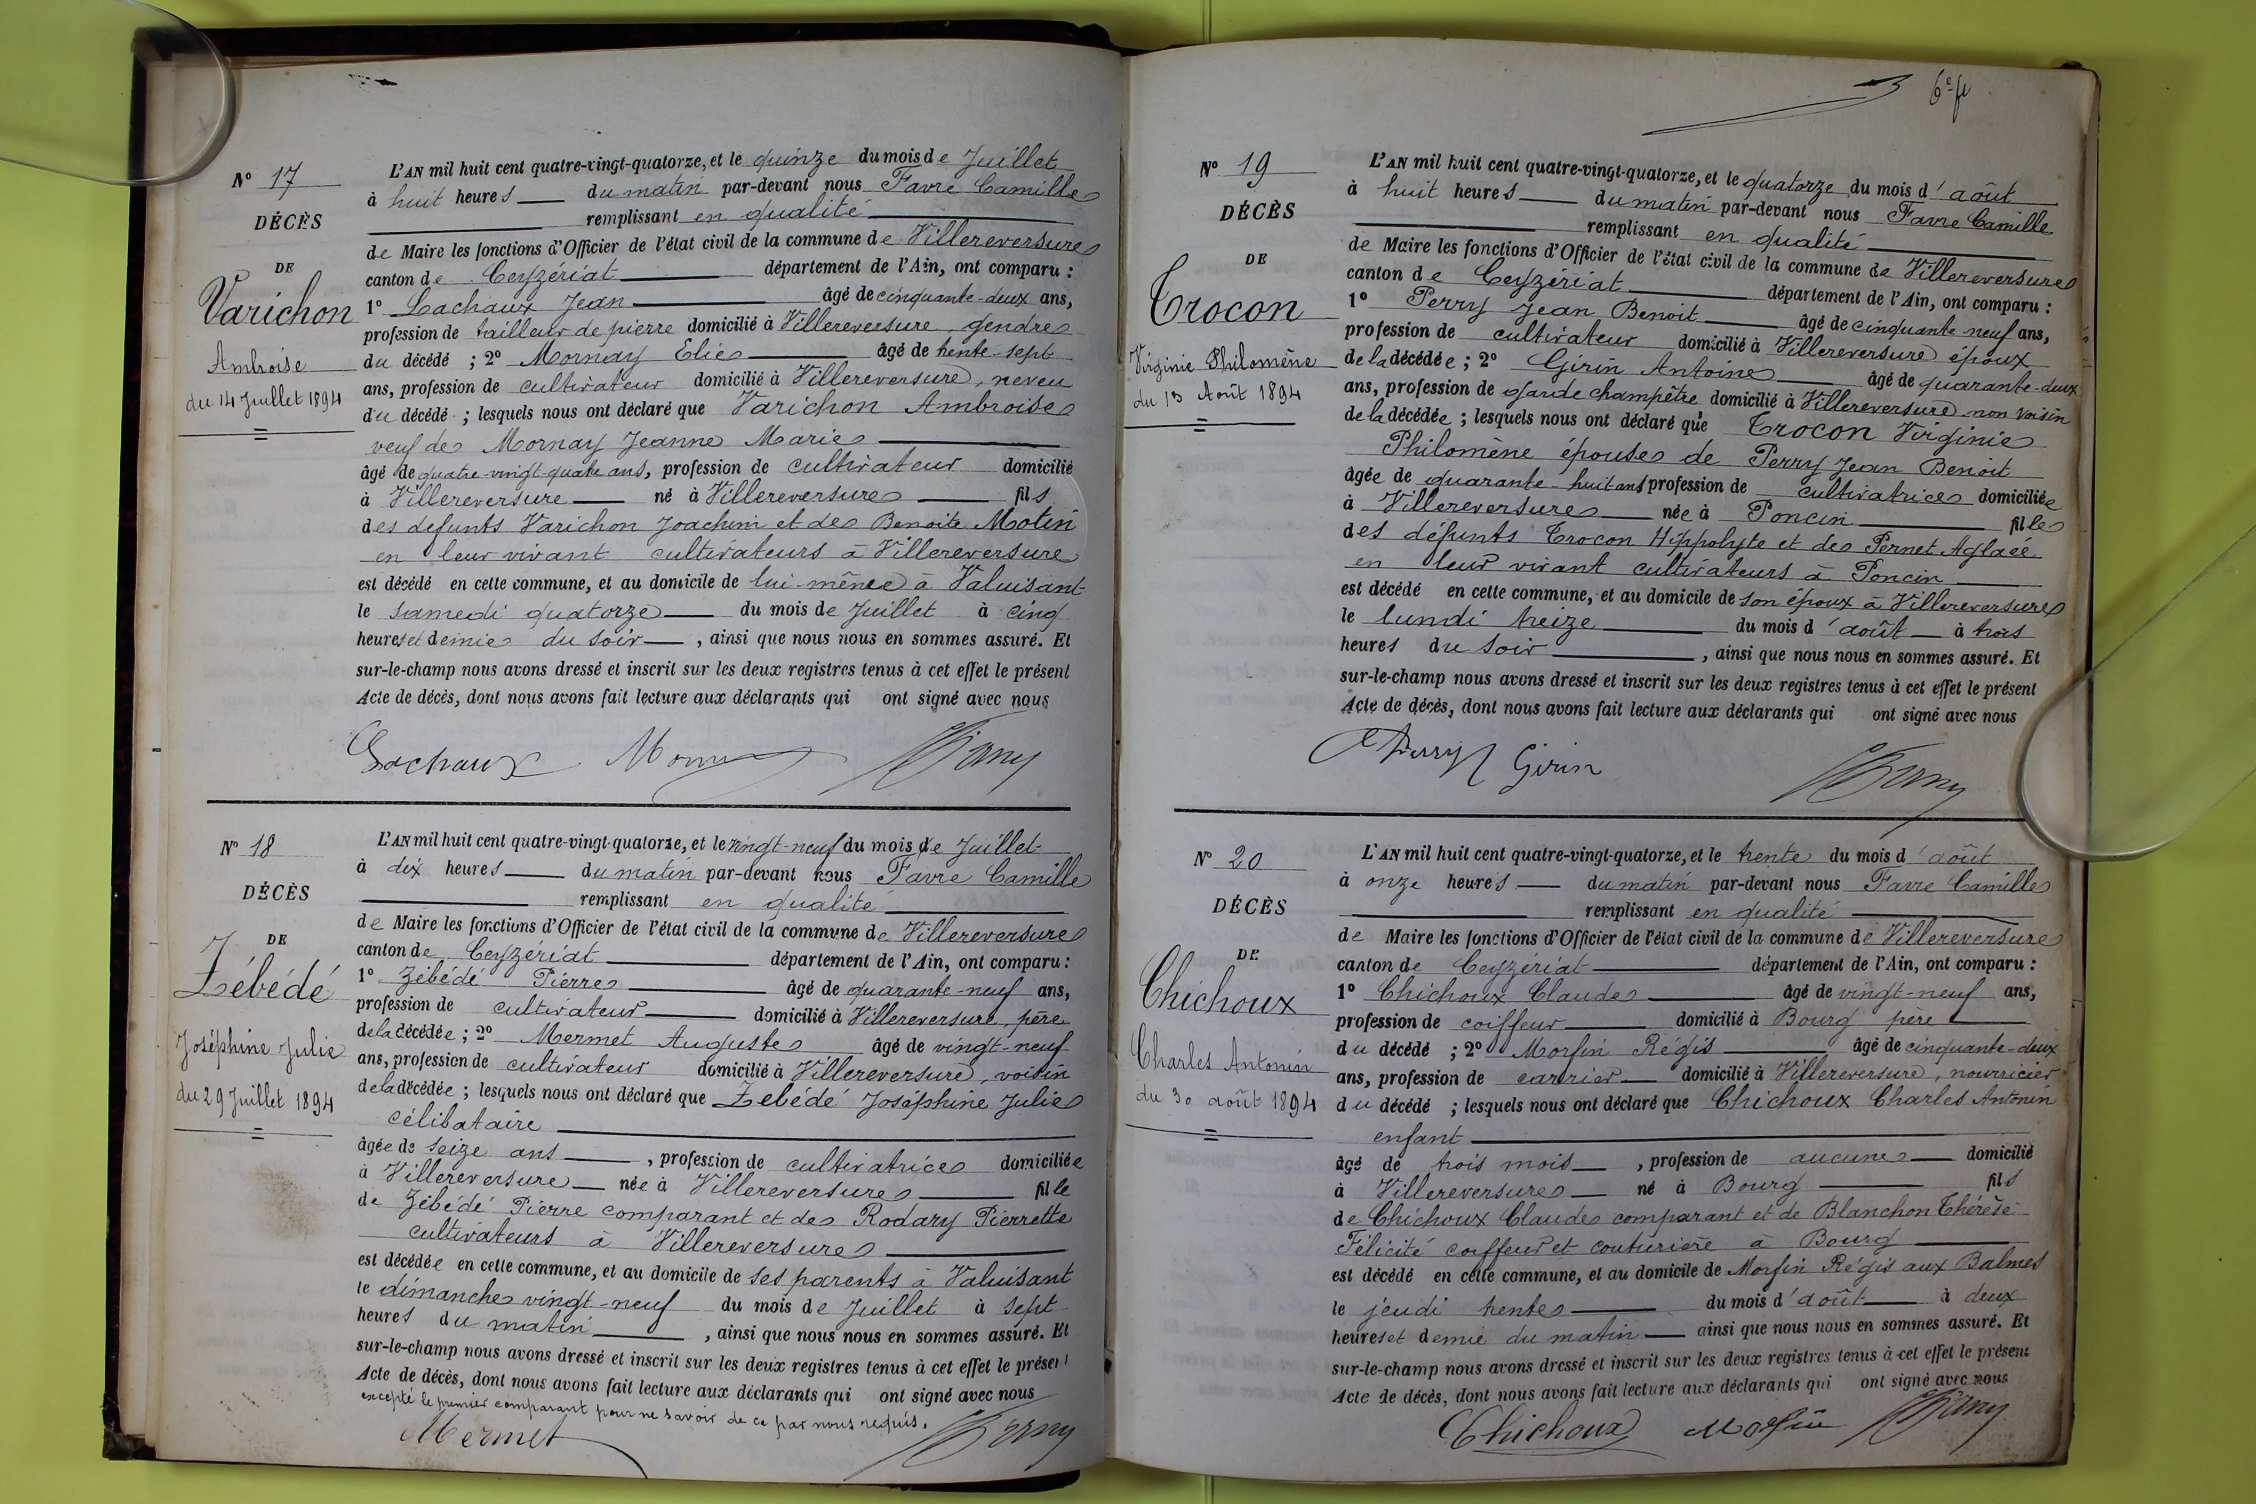 N° 17
DÉCÈS
DE
Varichon
Ambroise
du 14 Juillet 1894
L'AN mil huit cent quatre-vingt-quatorze, et le quinze du mois de Juillet
à huit heures du matin par-devant nous Favre Camille
remplissant en qualité
de Maire les fonctions d'Officier de l'état civil de la commune de Villereversure
canton de Ceyzériat département de l'Ain, ont comparu :
1° Lachaux Jean âgé de cinquante-deux ans,
profession de tailleur de pierre domicilié à Villereversure, gendre
du décédé ; 2° Mornay Elie âgé de trente-sept
ans, profession de cultivateur domicilié à Villereversure, neveu
du décédé ; lesquels nous ont déclaré que Varichon Ambroise
veuf de Mornay Jeanne Marie
âgé de quatre-vingt-quatre ans, profession de cultivateur domicilié
à Villereversure né à Villereversure fils
des defunts Varichon Joachim et de Benoite Motin
en leur vivant cultivateurs à Villereversure
est décédé en cette commune, et au domicile de lui-même à Valuisant
le samedi quatorze du mois de Juillet à cinq
heures et demie du soir, ainsi que nous nous en sommes assuré. Et
sur-le-champ nous avons dressé et inscrit sur les deux registres tenus à cet effet le présent
Acte de décès, dont nous avons fait lecture aux déclarants qui ont signé avec nous
Lachaux
N° 18
DÉCÈS
DE
Zébédé
Joséphine Julie
du 29 Juillet 1894
L'AN mil huit cent quatre-vingt-quatorze, et le vingt-neuf du mois de Juillet
à dix heures du matin par-devant nous Favre Camille
remplissant en qualité
de Maire les fonctions d'Officier de l'état civil de la commune de Villereversure
canton de Ceyzériat département de l'Ain, ont comparu :
1° Zébédé Pierre âgé de quarante-neuf ans,
profession de cultivateur domicilié à Villereversure, père
de la décédée ; 2° Mermet Auguste âgé de vingt-neuf
ans, profession de cultivateur domicilié à Villereversure, voisin
de la décédée ; lesquels nous ont déclaré que Zébédé Joséphine Julie
célibataire
âgée de seize ans, profession de cultivatrice domiciliée
à Villereversure née à Villereversure fille
de Zébédé Pierre comparant et de Rodary Pierrette
cultivateurs à Villereversure
est décédée en cette commune, et au domicile de ses parents à Valuisant
le dimanche vingt-neuf du mois de Juillet à sept
heures du matin, ainsi que nous nous en sommes assuré. Et
sur-le-champ nous avons dressé et inscrit sur les deux registres tenus à cet effet le présent
Acte de décès, dont nous avons fait lecture aux déclarants qui ont signé avec nous
excepté le premier comparant pour ne savoir de ce par nous requis.
Mermet
6e f
N° 19
DÉCÈS
DE
Trocon
Virginie Philomène
du 13 Août 1894
L'AN mil huit cent quatre-vingt-quatorze, et le quatorze du mois d'août
à huit heures du matin par-devant nous Favre Camille
remplissant en qualité
de Maire les fonctions d'Officier de l'état civil de la commune de Villereversure
canton de Ceyzériat département de l'Ain, ont comparu :
1° Perry Jean Benoit âgé de cinquante-neuf ans,
profession de cultivateur domicilié à Villereversure époux
de la décédée ; 2° Girin Antoine âgé de quarante-deux
ans, profession de garde champêtre domicilié à Villereversure non voisin
de la décédée ; lesquels nous ont déclaré que Trocon Virginie
Philomène épouse de Perry Jean Benoit
âgée de quarante-huit ans profession de cultivatrice domiciliée
à Villereversure née à Poncin fille
des défunts Trocon Hippolyte et de Pernet Aglaée
en leur vivant cultivateurs à Poncin
est décédé en cette commune, et au domicile de son époux à Villereversure
le lundi treize du mois d'août à trois
heures du soir, ainsi que nous nous en sommes assuré. Et
sur-le-champ nous avons dressé et inscrit sur les deux registres tenus à cet effet le présent
Acte de décès, dont nous avons fait lecture aux déclarants qui ont signé avec nous
Perry Girin
N° 20
DÉCÈS
DE
Chichoux
Charles Antonin
du 30 août 1894
L'AN mil huit cent quatre-vingt-quatorze, et le trente du mois d'août
à onze heures du matin par-devant nous Favre Camille
remplissant en qualité
de Maire les fonctions d'Officier de l'état civil de la commune de Villereversure
canton de Ceyzériat département de l'Ain, ont comparu :
1° Chichoux Claude âgé de vingt-neuf ans,
profession de coiffeur domicilié à Bourg père
du décédé ; 2° Morfin Régis âgé de cinquante-deux
ans, profession de carrier domicilié à Villereversure, nourricier
du décédé ; lesquels nous ont déclaré que Chichoux Charles Antonin
enfant
âgé de trois mois, profession de aucune domicilié
à Villereversure né à Bourg fils
de Chichoux Claude comparant et de Blanchon Thérèse
Félicité coiffeur et couturière à Bourg
est décédé en cette commune, et au domicile de Morfin Régis aux Balmes
le jeudi trente du mois d'août à deux
heures et demie du matin ainsi que nous nous en sommes assuré. Et
sur-le-champ nous avons dressé et inscrit sur les deux registres tenus à cet effet le présent
Acte de décès, dont nous avons fait lecture aux déclarants qui ont signé avec nous
Chichoux Morfin